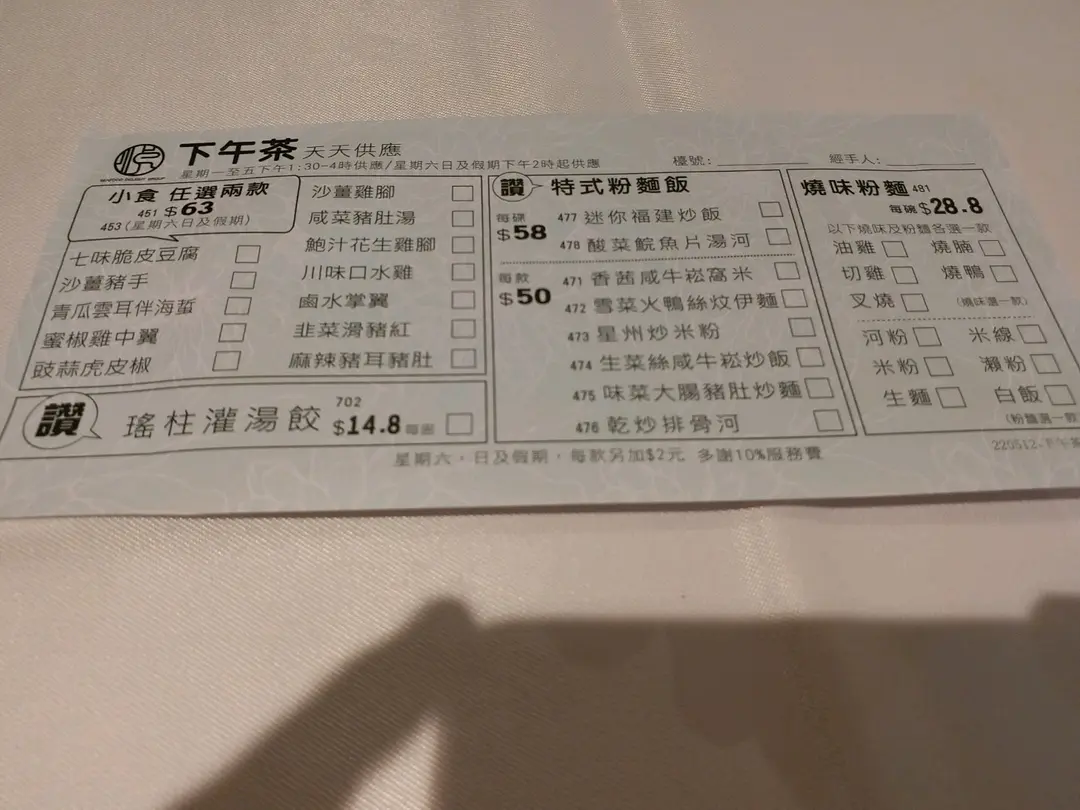 下午茶 天天供應
星期一至五下午1:30-4時供應/星期六日及假期下午2時起供應
檯號:
經手人:
小食 任選兩款
451 $63
453 (星期六日及假期)
七味脆皮豆腐
沙薑豬手
青瓜雲耳伴海蜇
蜜椒雞中翼
豉蒜虎皮椒
沙薑雞腳
咸菜豬肚湯
鮑汁花生雞腳
川味口水雞
鹵水掌翼
韭菜滑豬紅
麻辣豬耳豬肚
讚 瑤柱灌湯餃 702 $14.8
讚 特式粉麵飯
每碟 $58
477 迷你福建炒飯
478 酸菜鯇魚片湯河
每款 $50
471 香茜咸牛崧窩米
472 雪菜火鴨絲炆伊麵
473 星州炒米粉
474 生菜絲咸牛崧炒飯
475 味菜大腸豬肚炒麵
476 乾炒排骨河
燒味粉麵 481
每碗 $28.8
以下燒味及粉麵各選一款
油雞 燒腩
切雞 燒鴨
叉燒 (燒味選一款)
河粉 米線
米粉 瀨粉
生麵 白飯
(粉麵選一款
星期六,日及假期,每款另加$2元 多謝10%服務費
220512-下午茶